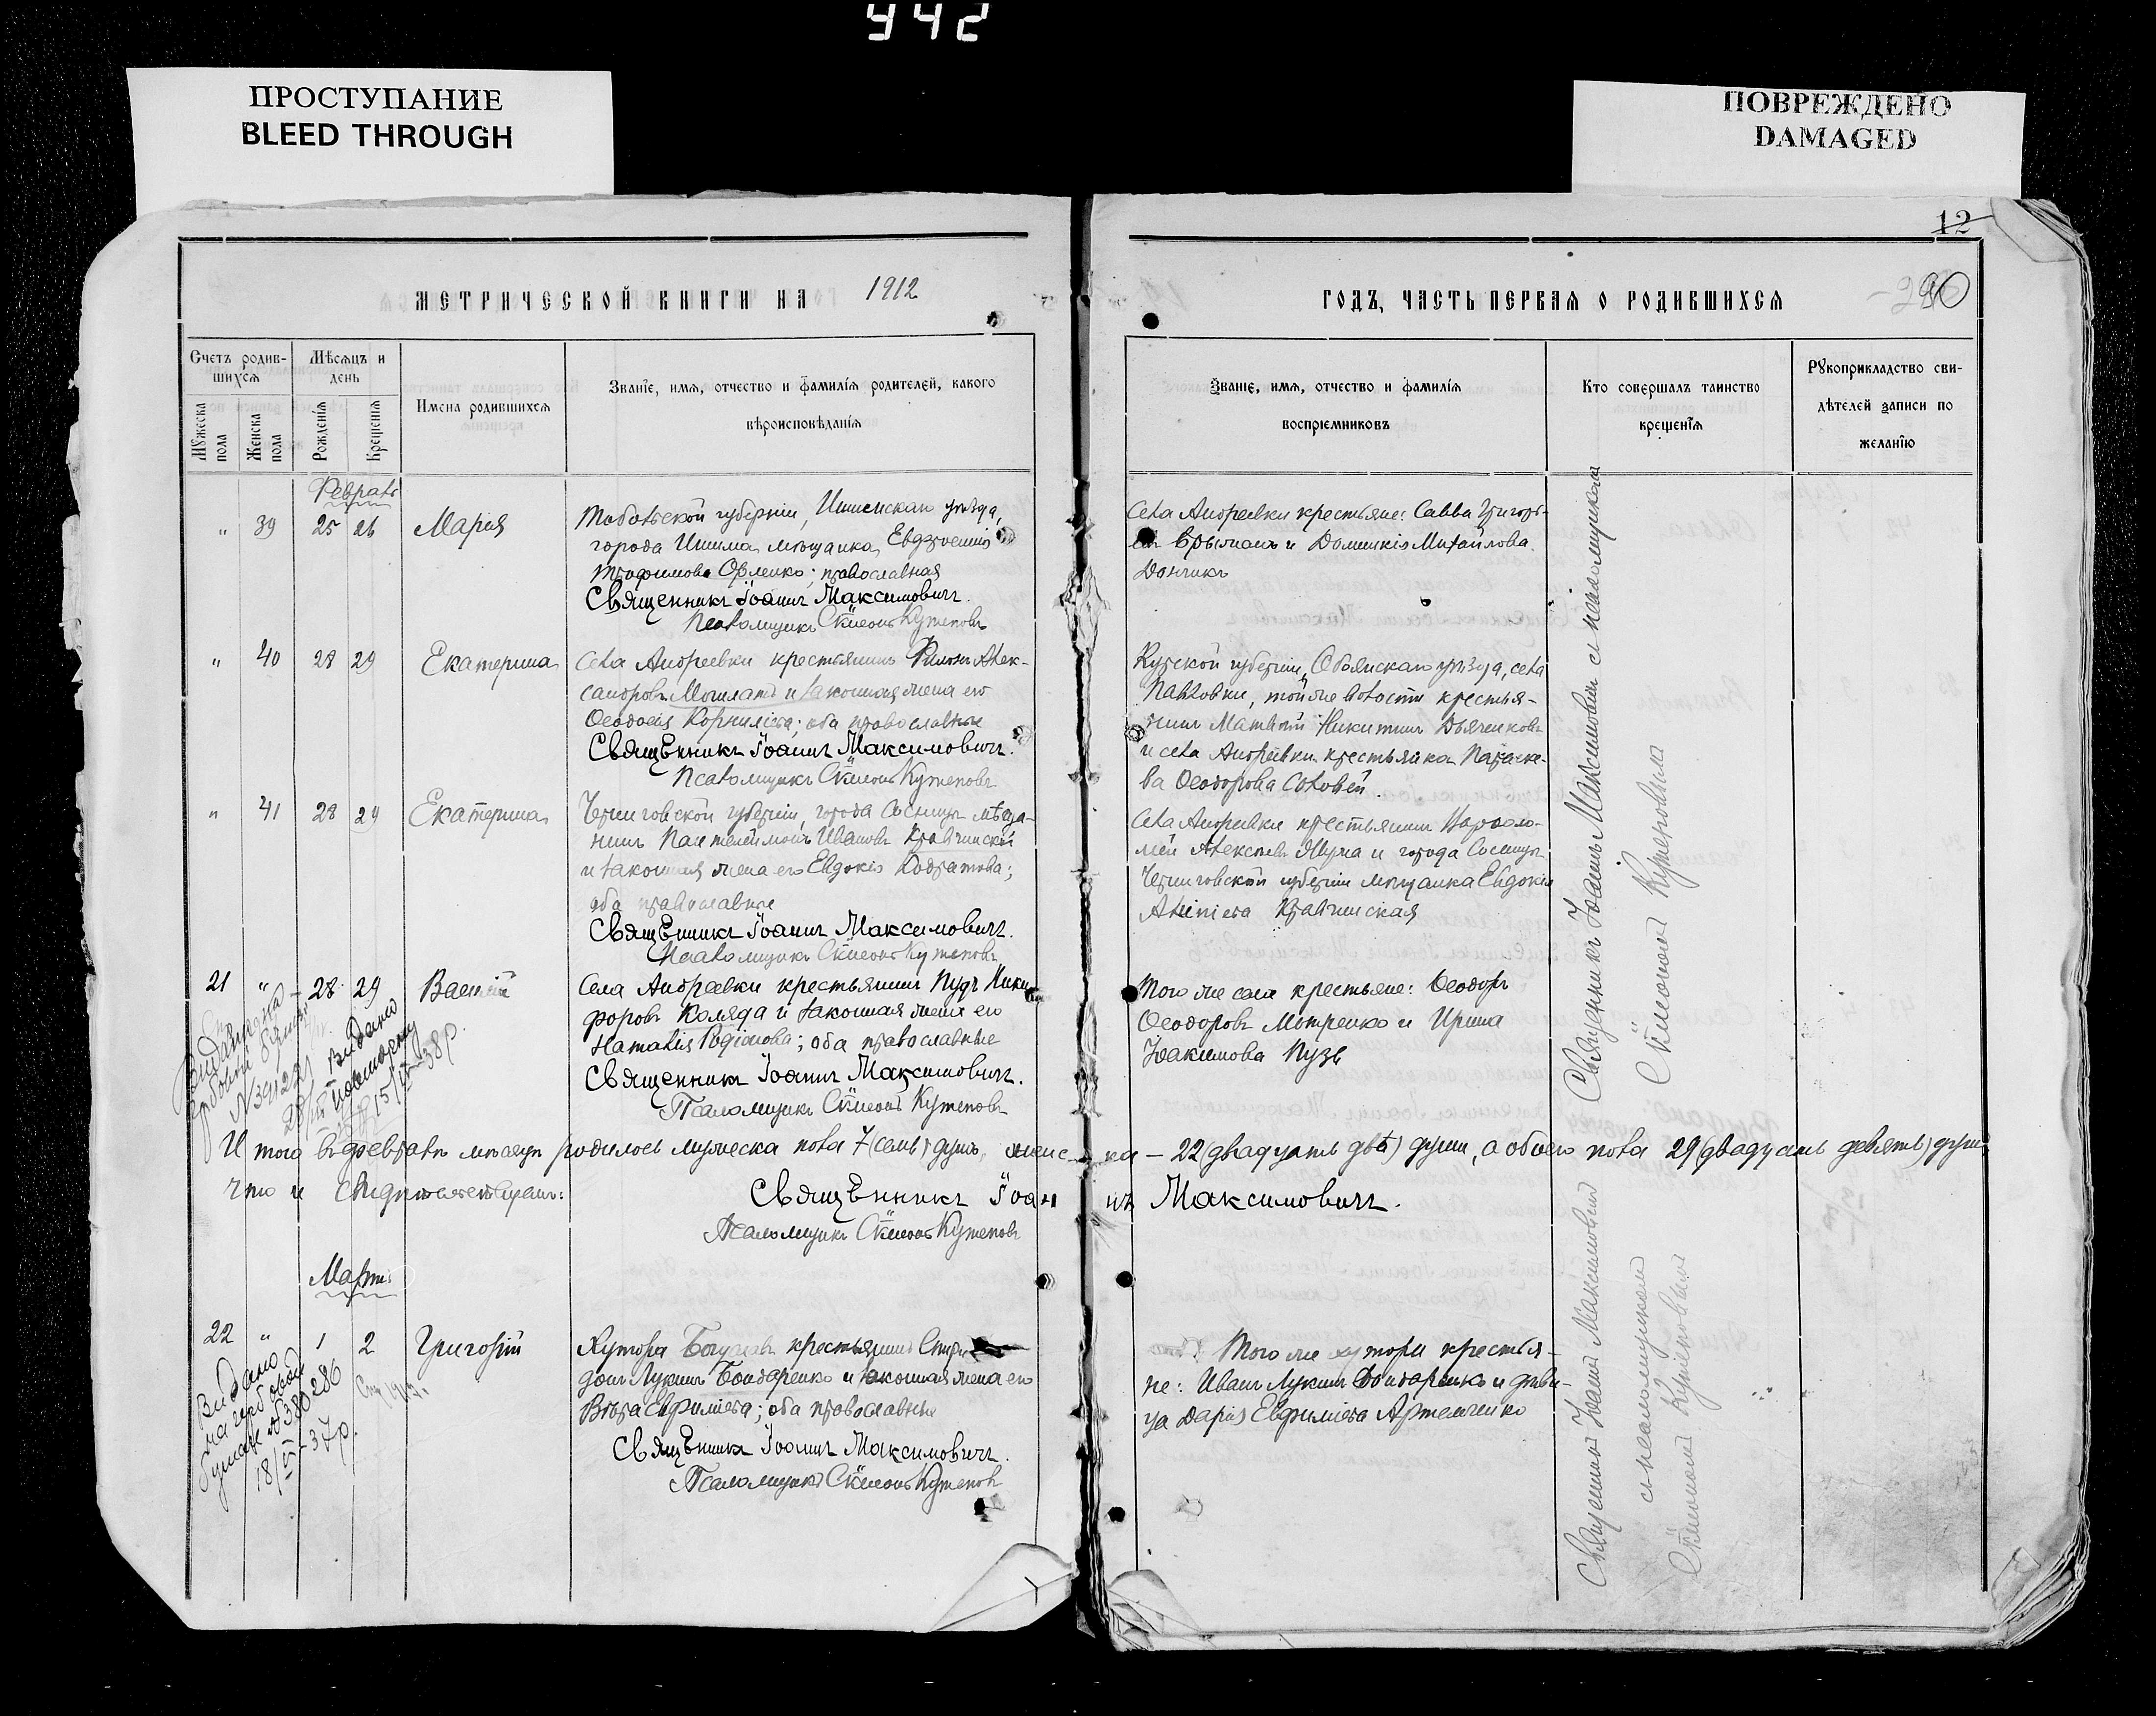 942
ПРОСТУПАНИЕ
BLEED THROUGH
ПОВРЕЖДЕНО
DAMAGED
12
90
МЕТРИЧЕСКОЙ КНИГИ НА 1912
ГОДЪ, ЧАСТЬ ПЕРВАЯ О РОДИВШИХСЯ
Счетъ родив-
шихся
Мѣсяцъ и
день
Имена родившихся
Званіе, имя, отчество и фамилія родителей, какого
вѣроисповѣданія
Мужеска
пола
Женска
пола
Рожденія
Крещенія
Званіе, имя, отчество и фамилія
воспріемниковъ
Кто совершалъ таинство
крещенія
Рукоприкладство сви-
дѣтелей записи по
желанію
Февраль
" 39 25 26 Марія
Тобольской губерніи, Ишимскаго уѣзда,
города Ишима мѣщанка
Трофимова Орленко; православная
Священникъ Іоаннъ Максимовичъ.
Псаломщикъ Сѵмеонъ Кутеповъ
Села Андреевки крестьяне: Савва Григорь-
евъ и Домникія Михайлова
Дончикъ
" 40 28 29 Екатерина
Села Андреевки крестьянинъ Филиппъ Алек-
сандровъ и законная жена его
Ѳеодосія Корниліева; оба православные
Священникъ Іоаннъ Максимовичъ.
Псаломщикъ Сѵмеонъ Кутеповъ
Курской губерніи, Обоянскаго уѣзда, села
Павловки, той же волости крестья-
нинъ Матвѣй Никитинъ Дьяченковъ
и села Андреевки крестьянка Параске-
ва Ѳеодорова Соловей.
" 41 28 29 Екатерина
Черниговской губерніи, города Сосницы мѣща-
нинъ Пантелеймонъ Ивановъ Кравчинскій
и законная жена его Евдокія Кодратова;
оба православные
Священникъ Іоаннъ Максимовичъ.
Псаломщикъ Сѵмеонъ Кутеповъ
Села Андреевки крестьянинъ Варѳоло-
мей Алексѣевъ и города Сосницы
Черниговской губерніи мѣщанка Евдокія
Кравчинская
21 " 28 29 Василій
Села Андреевки крестьянинъ Пудъ Ники-
форовъ Коляда и законная жена его
Наталія Родіонова; оба православные
Священникъ Іоаннъ Максимовичъ.
Псаломщикъ Сѵмеонъ Кутеповъ
Того же села крестьяне: Ѳеодоръ
Ѳеодоровъ Мотренко и Ирина
Іоакимова Пузь
Видано
15/IX-38р.
Итого въ февралѣ мѣсяцѣ родилось мужеска пола 7 (семь) душъ, женска – 22 (двадцать двѣ) души, а обоего пола 29 (двадцать девять) душъ
что и свидѣтельствуемъ:
Священникъ Іоаннъ Максимовичъ.
Псаломщикъ Сѵмеонъ Кутеповъ
Мартъ
22 " 1 2 Григорій
Хутора крестьянинъ Спири-
донъ Лукинъ Бондаренко и законная жена его
Евфиміева; оба православные
Священникъ Іоаннъ Максимовичъ.
Псаломщикъ Сѵмеонъ Кутеповъ
Того же хутора крестья-
не: Иванъ Лукинъ Бондаренко и дѣви-
ца Дарія Евфиміева Артеменко
Видано
на гербовой
бумазі № 380286
18/V-37р.
Священникъ Іоаннъ Максимовичъ съ псаломщикомъ
Сѵмеономъ Кутеповымъ
Священникъ Іоаннъ Максимовичъ
съ псаломщикомъ
Сѵмеономъ Кутеповымъ